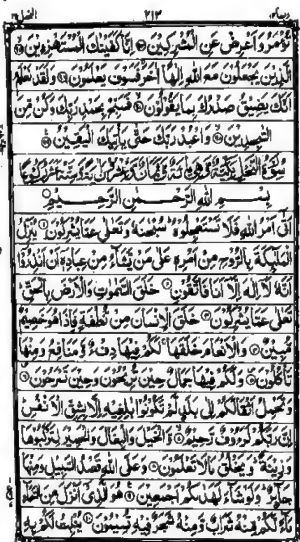 ربما ١٤ ٢١٣ النحل ١٦
تؤمر واعرض عن المشركين انا كفينك المستهزءين
الذين يجعلون مع الله الها اخر فسوف يعلمون ولقد نعلم
انك يضيق صدرك بما يقولون فسبح بحمد ربك وكن من
السجدين واعبد ربك حتى ياتيك اليقين
سورة النحل مكية وهي مائة وثمان وعشرون اية وستة عشر ركوعا
بسم الله الرحمن الرحيم
اتى امر الله فلا تستعجلوه سبحنه وتعلى عما يشركون ينزل
الملئكة بالروح من امره على من يشاء من عباده ان انذروا
انه لا اله الا انا فاتقون خلق السموت والارض بالحق
تعلى عما يشركون خلق الانسان من نطفة فاذا هو خصيم
مبين والانعام خلقها لكم فيها دفء ومنافع ومنها
تاكلون ولكم فيها جمال حين تريحون وحين تسرحون
وتحمل اثقالكم الى بلد لم تكونوا بلغيه الا بشق الانفس
ان ربكم لرءوف رحيم والخيل والبغال والحمير لتركبوها
وزينة ويخلق ما لا تعلمون وعلى الله قصد السبيل ومنها
جائر ولو شاء لهدىكم اجمعين هو الذي انزل من السماء
ماء لكم منه شراب ومنه شجر فيه تسيمون ينبت لكم به